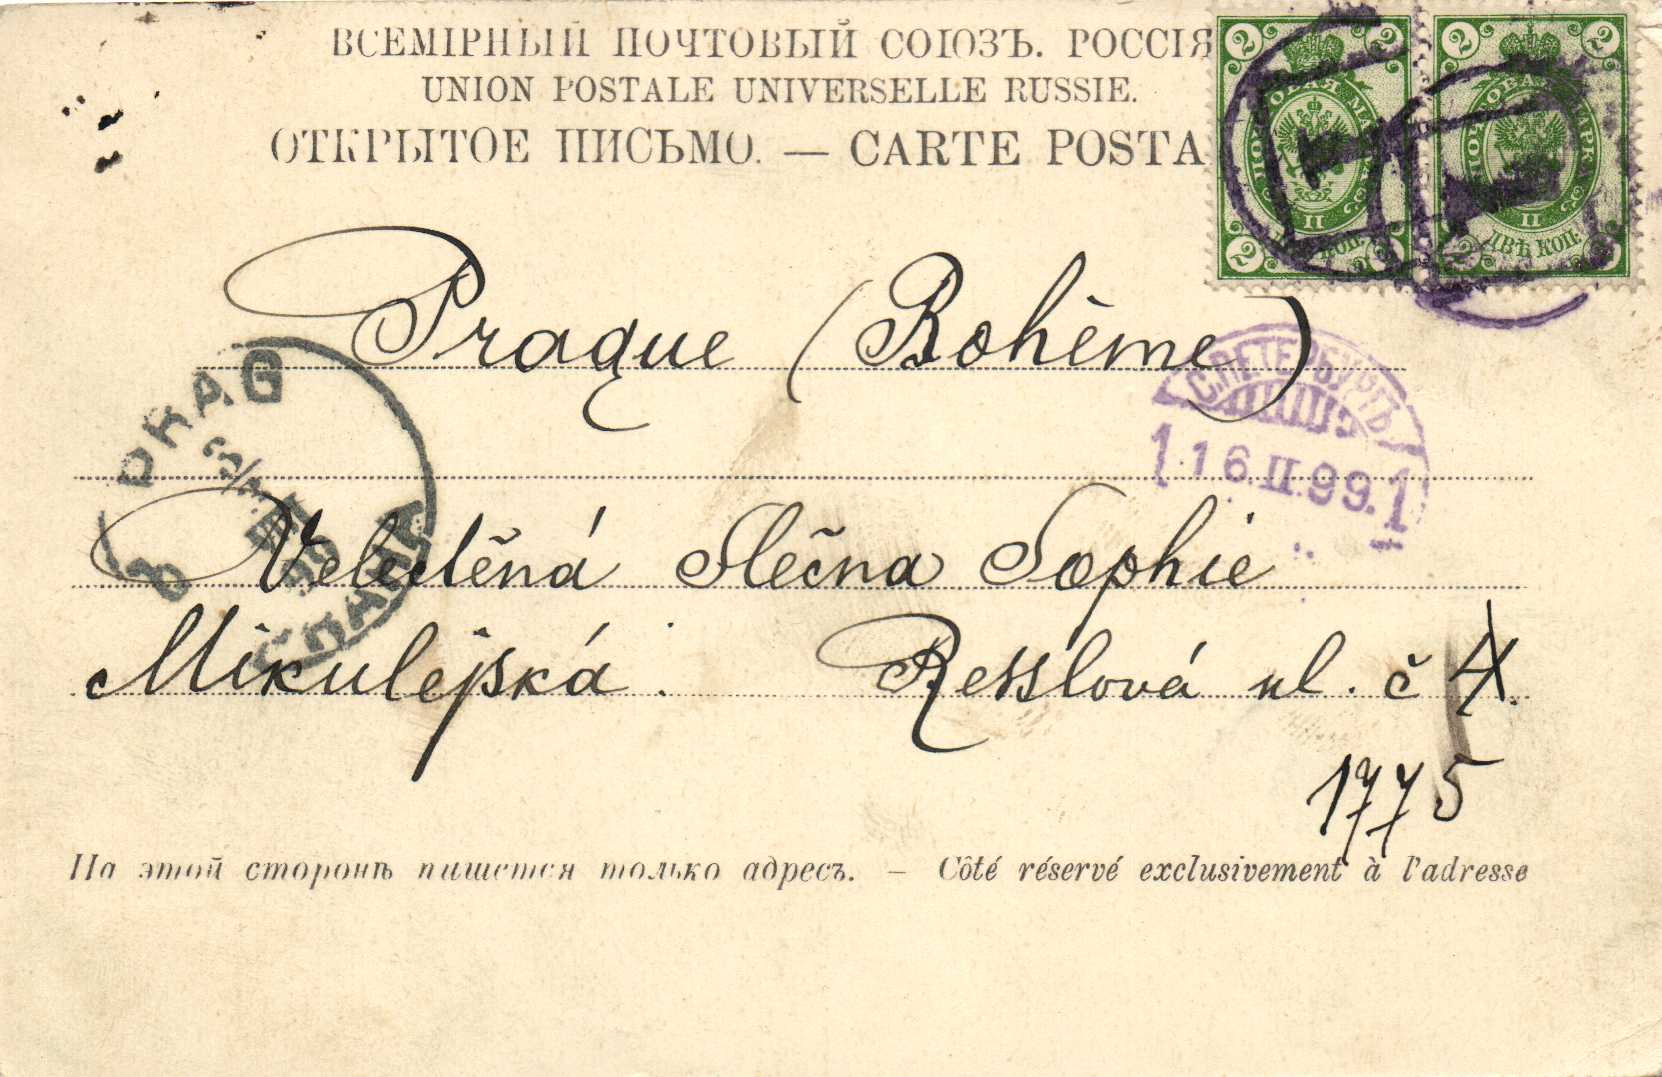 ВСЕМІРНЫЙ ПОЧТОВЫЙ СОЮЗЪ. РОССІЯ
UNION POSTALE UNIVERSELLE RUSSIE.
ОТКРЫТОЕ ПИСЬМО. — CARTE POSTA
2 2 ПОЧТОВАЯ МАРКА II 2
2 2 ПОЧТОВАЯ МАРКА II ДВѢ КОП. 2
1 1
Prague (Bohême)
С.ПЕТЕРБУРГЪ
1 16.II.99. 1
PRAG
PRAHA
99
Velectěná Slečna Sophie
Mikulejská. Resslová ul. č 4.
1775
На этой сторонѣ пишется только адресъ. — Côté réservé exclusivement à l'adresse